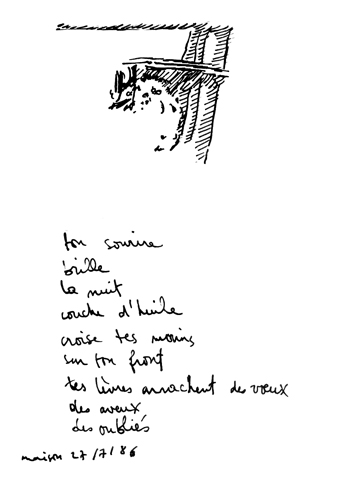 ton sourire
brille
la nuit
couche d'huile
croise tes mains
sur ton front
tes lèvres arrachent des vœux
des aveux
des oubliés
maison 27/7/86